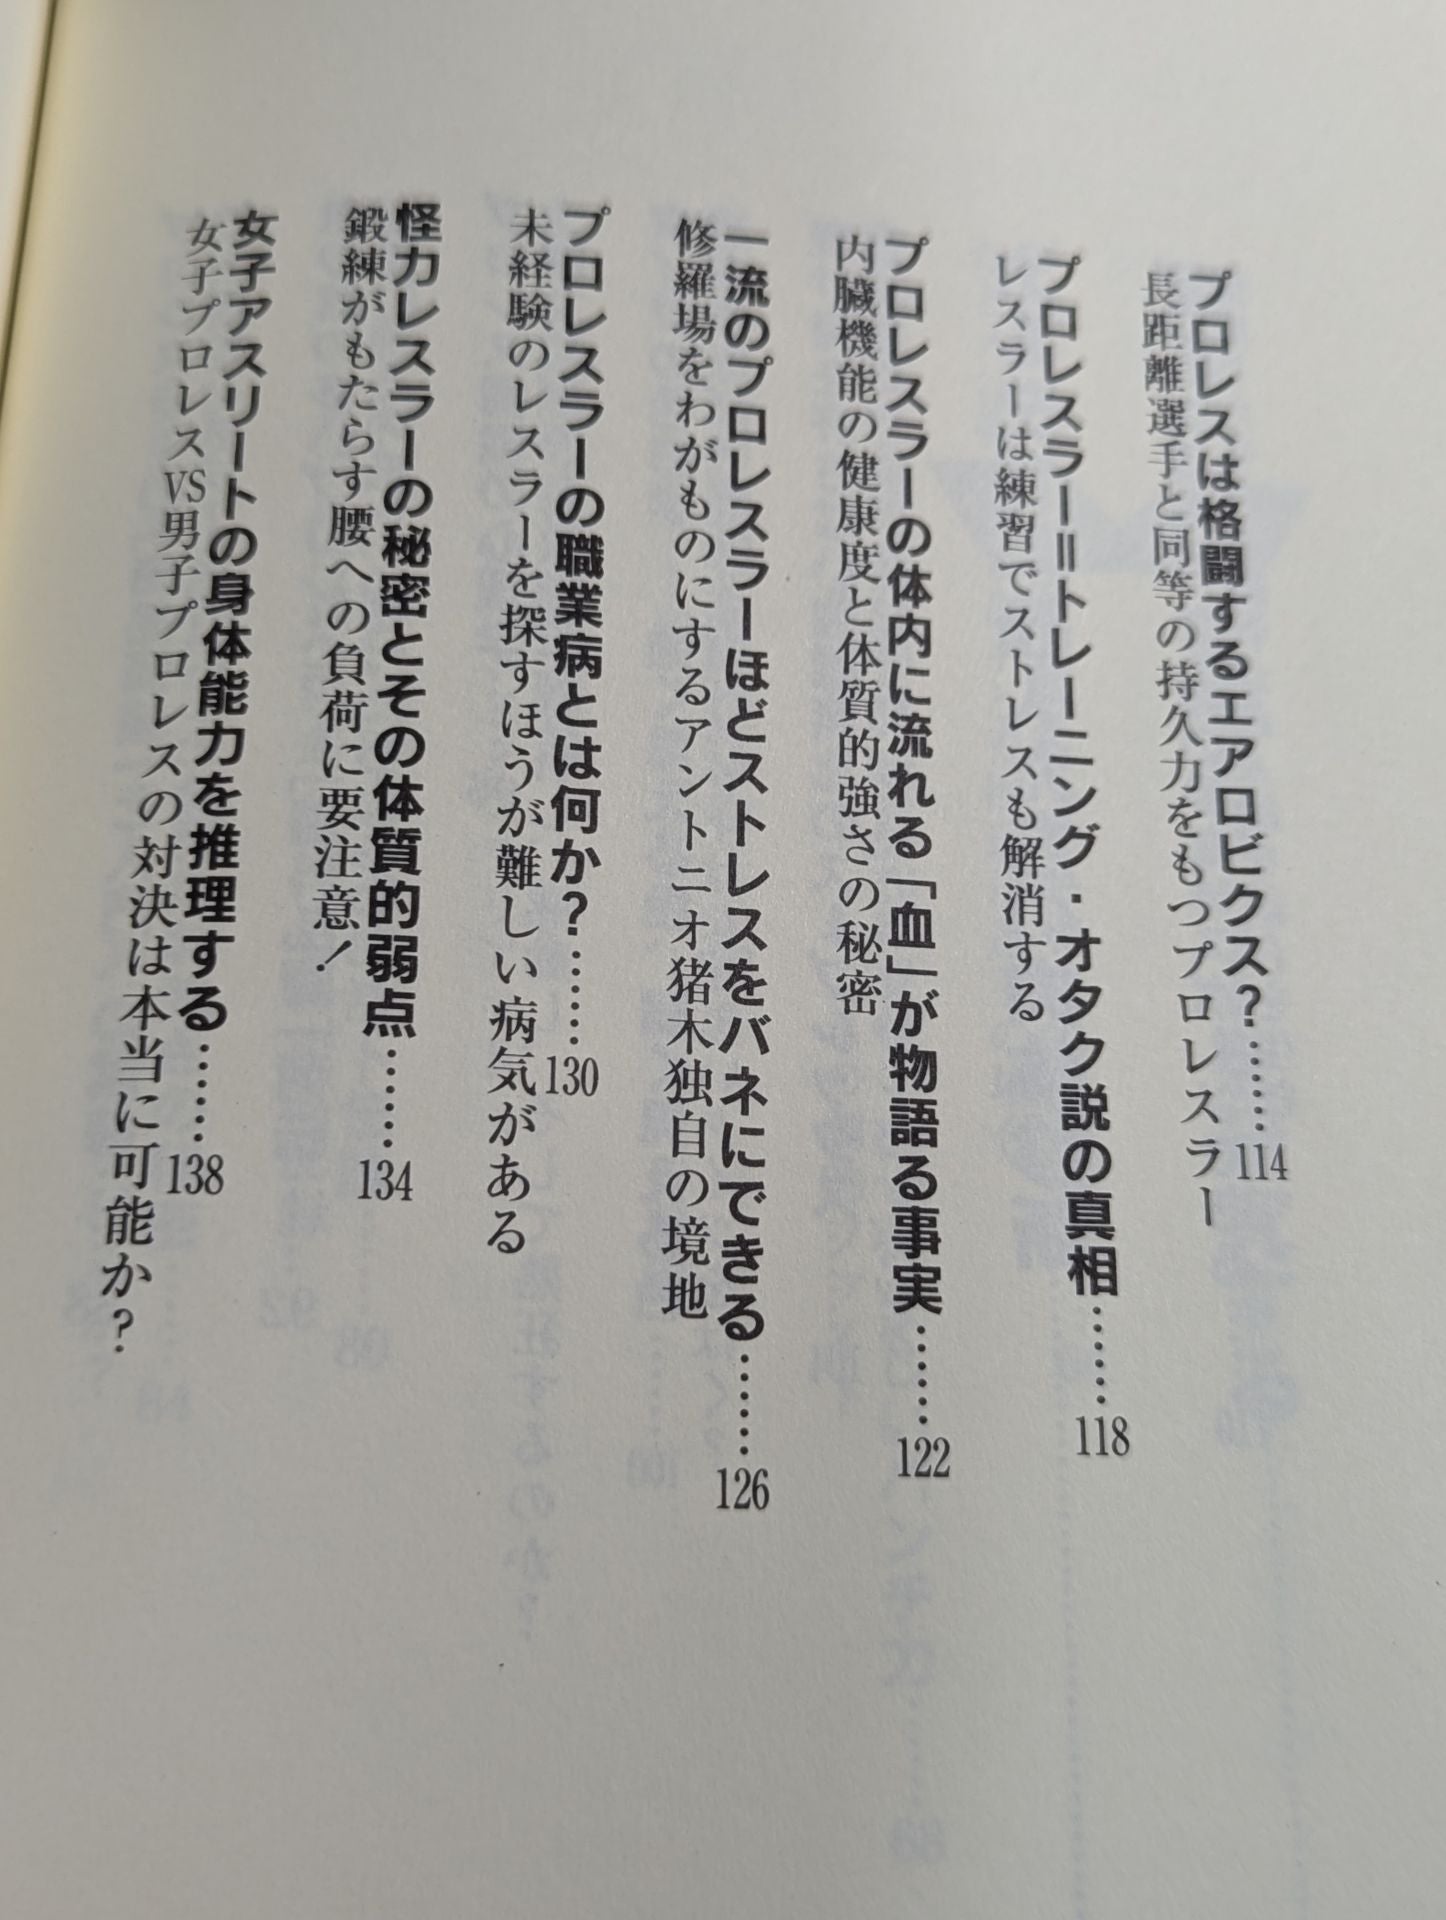 プロレスは格闘するエアロビクス？……114
長距離選手と同等の持久力をもつプロレスラー
プロレスラー＝トレーニング・オタク説の真相……118
レスラーは練習でストレスも解消する
プロレスラーの体内に流れる「血」が物語る事実……122
内臓機能の健康度と体質的強さの秘密
一流のプロレスラーほどストレスをバネにできる……126
修羅場をわがものにするアントニオ猪木独自の境地
プロレスラーの職業病とは何か？……130
未経験のレスラーを探すほうが難しい病気がある
怪力レスラーの秘密とその体質的弱点……134
鍛練がもたらす腰への負荷に要注意！
女子アスリートの身体能力を推理する……138
女子プロレスVS男子プロレスの対決は本当に可能か？